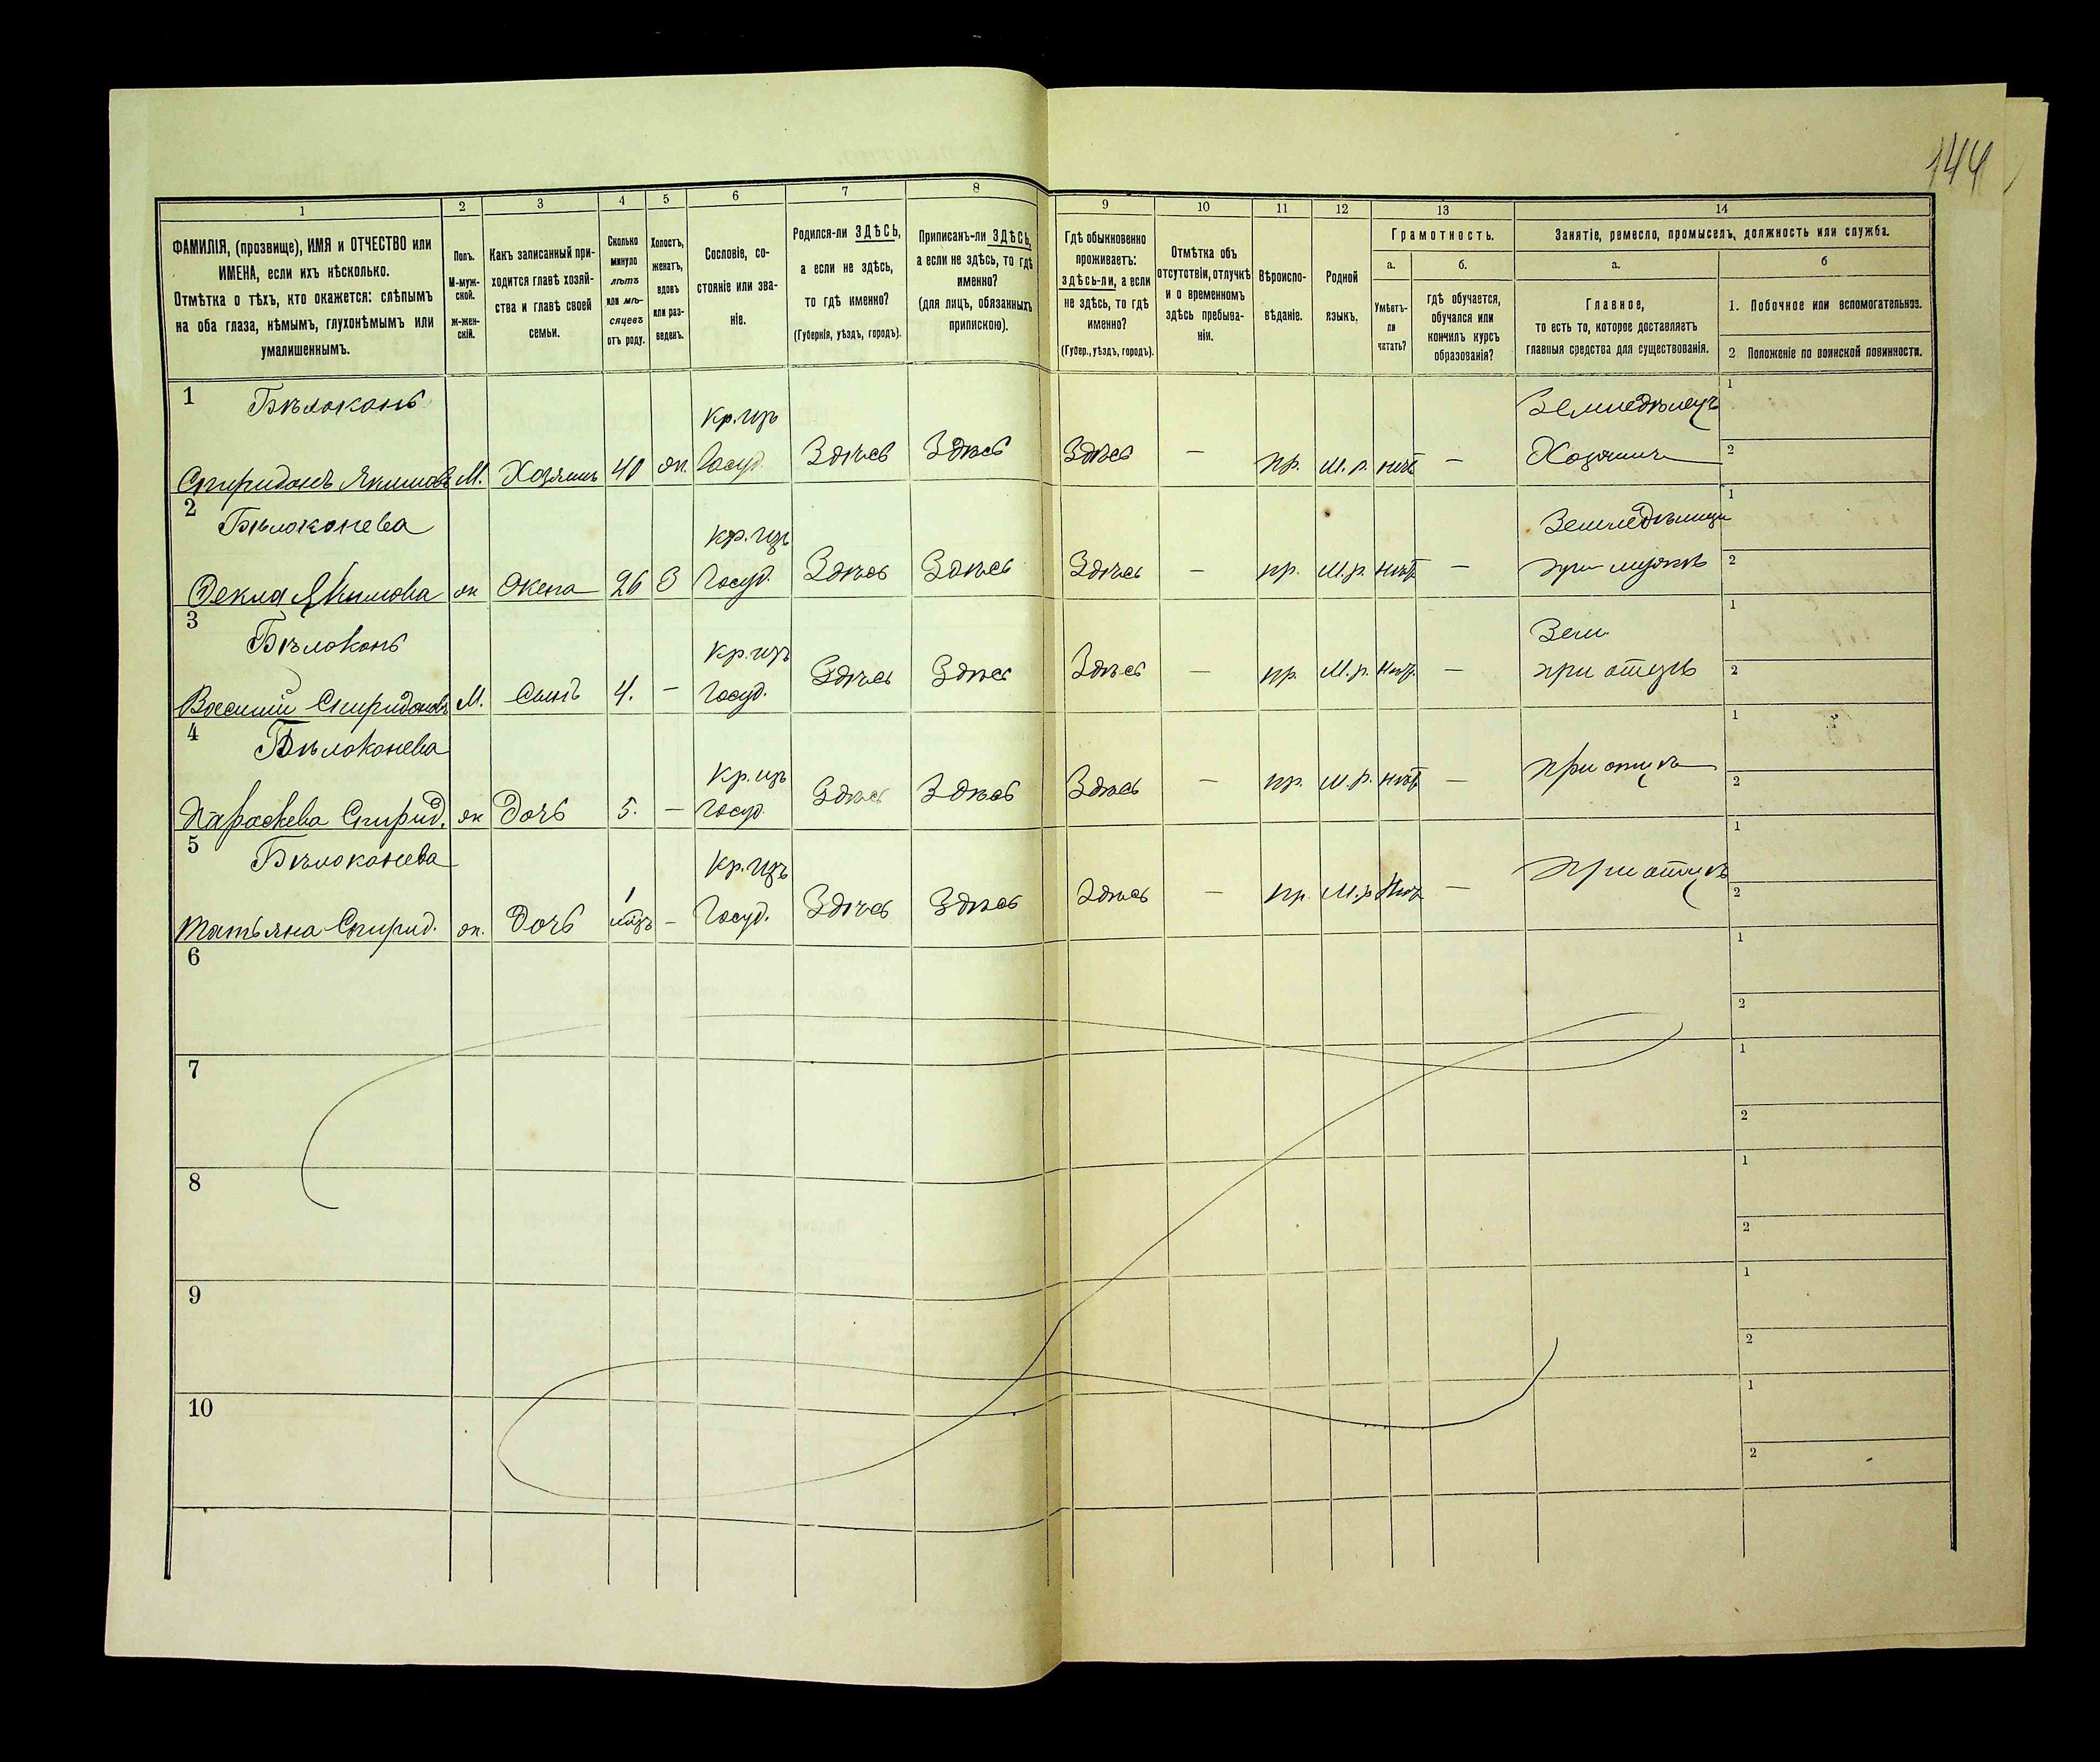 144
1 2 3 4 5 6 7 8 9 10 11 12 13 14
ФАМИЛІЯ, (прозвище), ИМЯ и ОТЧЕСТВО или
ИМЕНА, если ихъ нѣсколько.
Отмѣтка о тѣхъ, кто окажется: слѣпымъ
на оба глаза, нѣмымъ, глухонѣмымъ или
умалишеннымъ.
Полъ.
М-муж-
ской.
ж-жен-
скій.
Какъ записанный при-
ходится главѣ хозяй-
ства и главѣ своей
семьи.
Сколько
минуло
лѣтъ
или мѣ-
сяцевъ
отъ роду.
Холостъ,
женатъ,
вдовъ
или раз-
веденъ.
Сословіе, со-
стояніе или зва-
ніе.
Родился-ли ЗДѢСЬ,
а если не здѣсь,
то гдѣ именно?
(Губернія, уѣздъ, городъ).
Приписанъ-ли ЗДѢСЬ,
а если не здѣсь, то гдѣ
именно?
(для лицъ, обязанныхъ
припискою).
Гдѣ обыкновенно
проживаетъ:
здѣсь-ли, а если
не здѣсь, то гдѣ
именно?
(Губер., уѣздъ, городъ).
Отмѣтка объ
отсутствіи, отлучкѣ
и о временномъ
здѣсь пребыва-
ніи.
Вѣроиспо-
вѣданіе.
Родной
языкъ.
Грамотность.
а.
Умѣетъ-
ли
читать?
б.
гдѣ обучается,
обучался или
кончилъ курсъ
образованія?
Занятіе, ремесло, промыселъ, должность или служба.
а.
Главное,
то есть то, которое доставляетъ
главныя средства для существованія.
б
1. Побочное или вспомогательное.
2 Положеніе по воинской повинности.
1 Бѣлоконь кр. изъ Земледѣлецъ 1
Спиридонъ Якимовъ М. Хозяинъ 40 ж. Госуд. Здѣсь Здѣсь Здѣсь — пр. М. р. нѣтъ — Хозяинъ 2
2 Бѣлоконева кр. изъ 1
Фекла Якимова ж Жена 26 З Госуд. Здѣсь Здѣсь Здѣсь — пр. М. р. нѣтъ — при мужѣ 2
3 Бѣлоконь кр. изъ Земл. 1
Василий Спиридоновъ М. Сынъ 4. — Госуд. Здѣсь Здѣсь Здѣсь — пр. М. р. нѣтъ — при отцѣ 2
4 Бѣлоконева кр. изъ 1
Параскева Спирид. ж Дочь 5. — Госуд. Здѣсь Здѣсь Здѣсь — пр. М. р. нѣтъ — при отцѣ 2
5 Бѣлоконева 1 кр. изъ 1
Татьяна Спирид. ж. Дочь — Госуд. Здѣсь Здѣсь Здѣсь — пр. М. р нѣтъ — при отцѣ 2
6 1
2
7 1
2
8 1
2
9 1
2
10 1
2